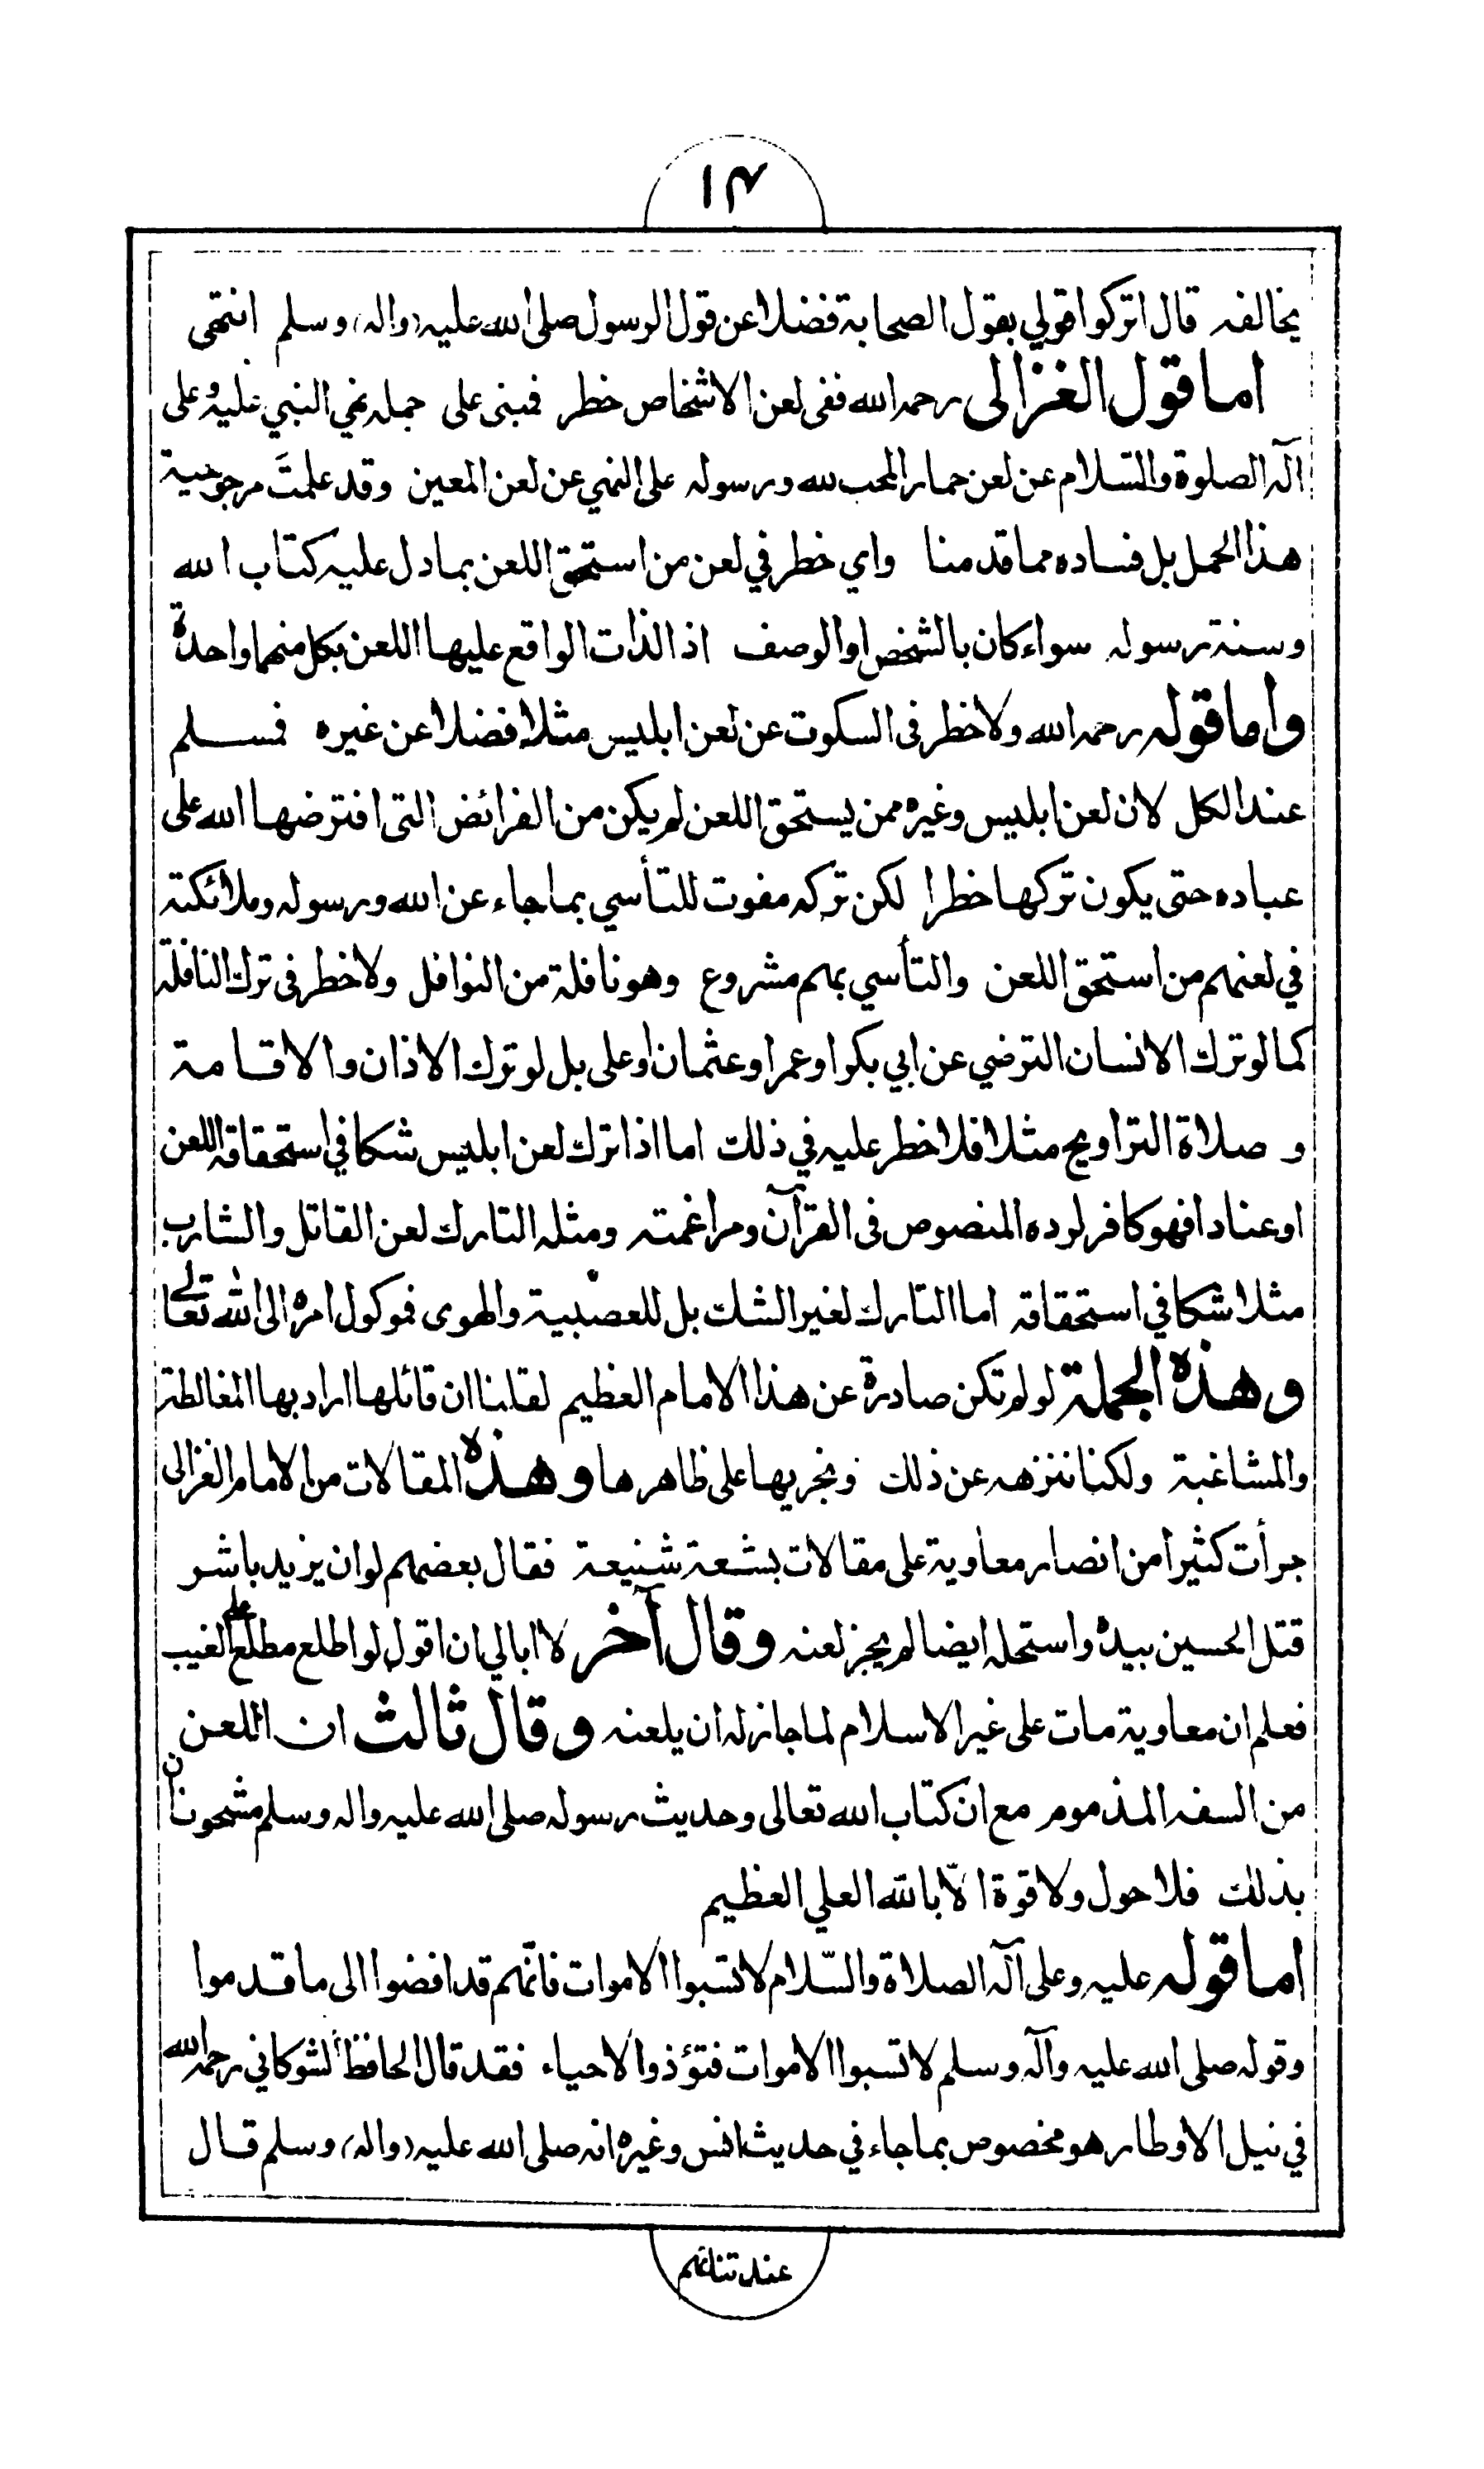 ١٤
يخالفه قال اتركوا قولي بقول الصحابة فضلا عن قول الرسول صلى الله عليه (واله) وسلم انتهى
اما قول الغزالى رحمه الله ففى لعن الاشخاص خطر فمبنى على حمله نهي النبي عليه وعلى
آله الصلوة والسلام عن لعن حمار المحب لله ورسوله على النهي عن لعن المعين وقد علمتَ مرجوحية
هذا الحمل بل فساده مما قدمنا واي خطر في لعن من استحق اللعن بما دل عليه كتاب الله
وسنة رسوله سواء كان بالشخص او الوصف اذ الذات الواقع عليها اللعن بكل منهما واحدة
واما قوله رحمه الله ولا خطر فى السكوت عن لعن ابليس مثلا فضلا عن غيره فمسلم
عند الكل لان لعن ابليس وغيره ممن يستحق اللعن لم يكن من الفرائض التى افترضها الله على
عباده حتى يكون تركها خطرا لكن تركه مفوت للتأسي بما جاء عن الله ورسوله وملائكته
في لعنهم من استحق اللعن والتأسي بهم مشروع وهو نافلة من النوافل ولا خطر فى ترك النافلة
كما لو ترك الانسان الترضي عن ابي بكر او عمر او عثمان او على بل لو ترك الاذان والاقامة
و صلاة التراويح مثلا فلا خطر عليه في ذلك اما اذا ترك لعن ابليس شكا في استحقاقه اللعن
او عنادا فهو كافر لرده المنصوص فى القرآن ومراغمته ومثله التارك لعن القاتل والشارب
مثلا شكا في استحقاقه اما التارك لغير الشك بل للعصبية والهوى فموكول امره الى الله تعالى
وهذه الجملة لو لم تكن صادرة عن هذا الامام العظيم لقلنا ان قائلها اراد بها المغالطة
والمشاغبة ولكنا ننزهه عن ذلك ونجريها على ظاهرها وهذه المقالات من الامام الغزالى
جرأت كثيرا من انصار معاوية على مقالات بشعة شنيعة فقال بعضهم لو ان يزيد باشر
قتل الحسين بيده واستحله ايضا لم يجز لعنه وقال آخر لا ابالي ان اقول لو اطلع مطلع على الغيب
فعلم ان معاوية مات على غير الاسلام لما جاز له ان يلعنه وقال ثالث ان اللعن
من السفه المذموم مع ان كتاب الله تعالى وحديث رسوله صلى الله عليه واله وسلم مشحونان
بذلك فلا حول ولا قوة الّا بالله العلي العظيم
اما قوله عليه وعلى آله الصلاة والسّلام لا تسبوا الاموات فانّهم قد افضوا الى ما قدموا
وقوله صلى الله عليه وآله وسلم لا تسبوا الاموات فتؤذوا الاحياء فقد قال الحافظ الشوكاني رحمه الله
في نيل الاوطار هو مخصوص بما جاء في حديث انس وغيره انه صلى الله عليه (واله) وسلم قال